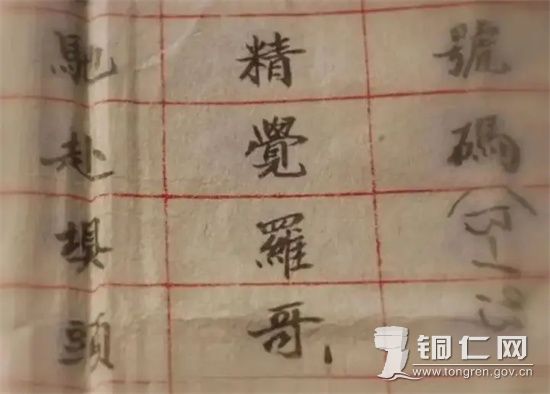 號碼
精覺羅哥、
馳赴埧頭
铜仁网
www.tongren.gov.cn